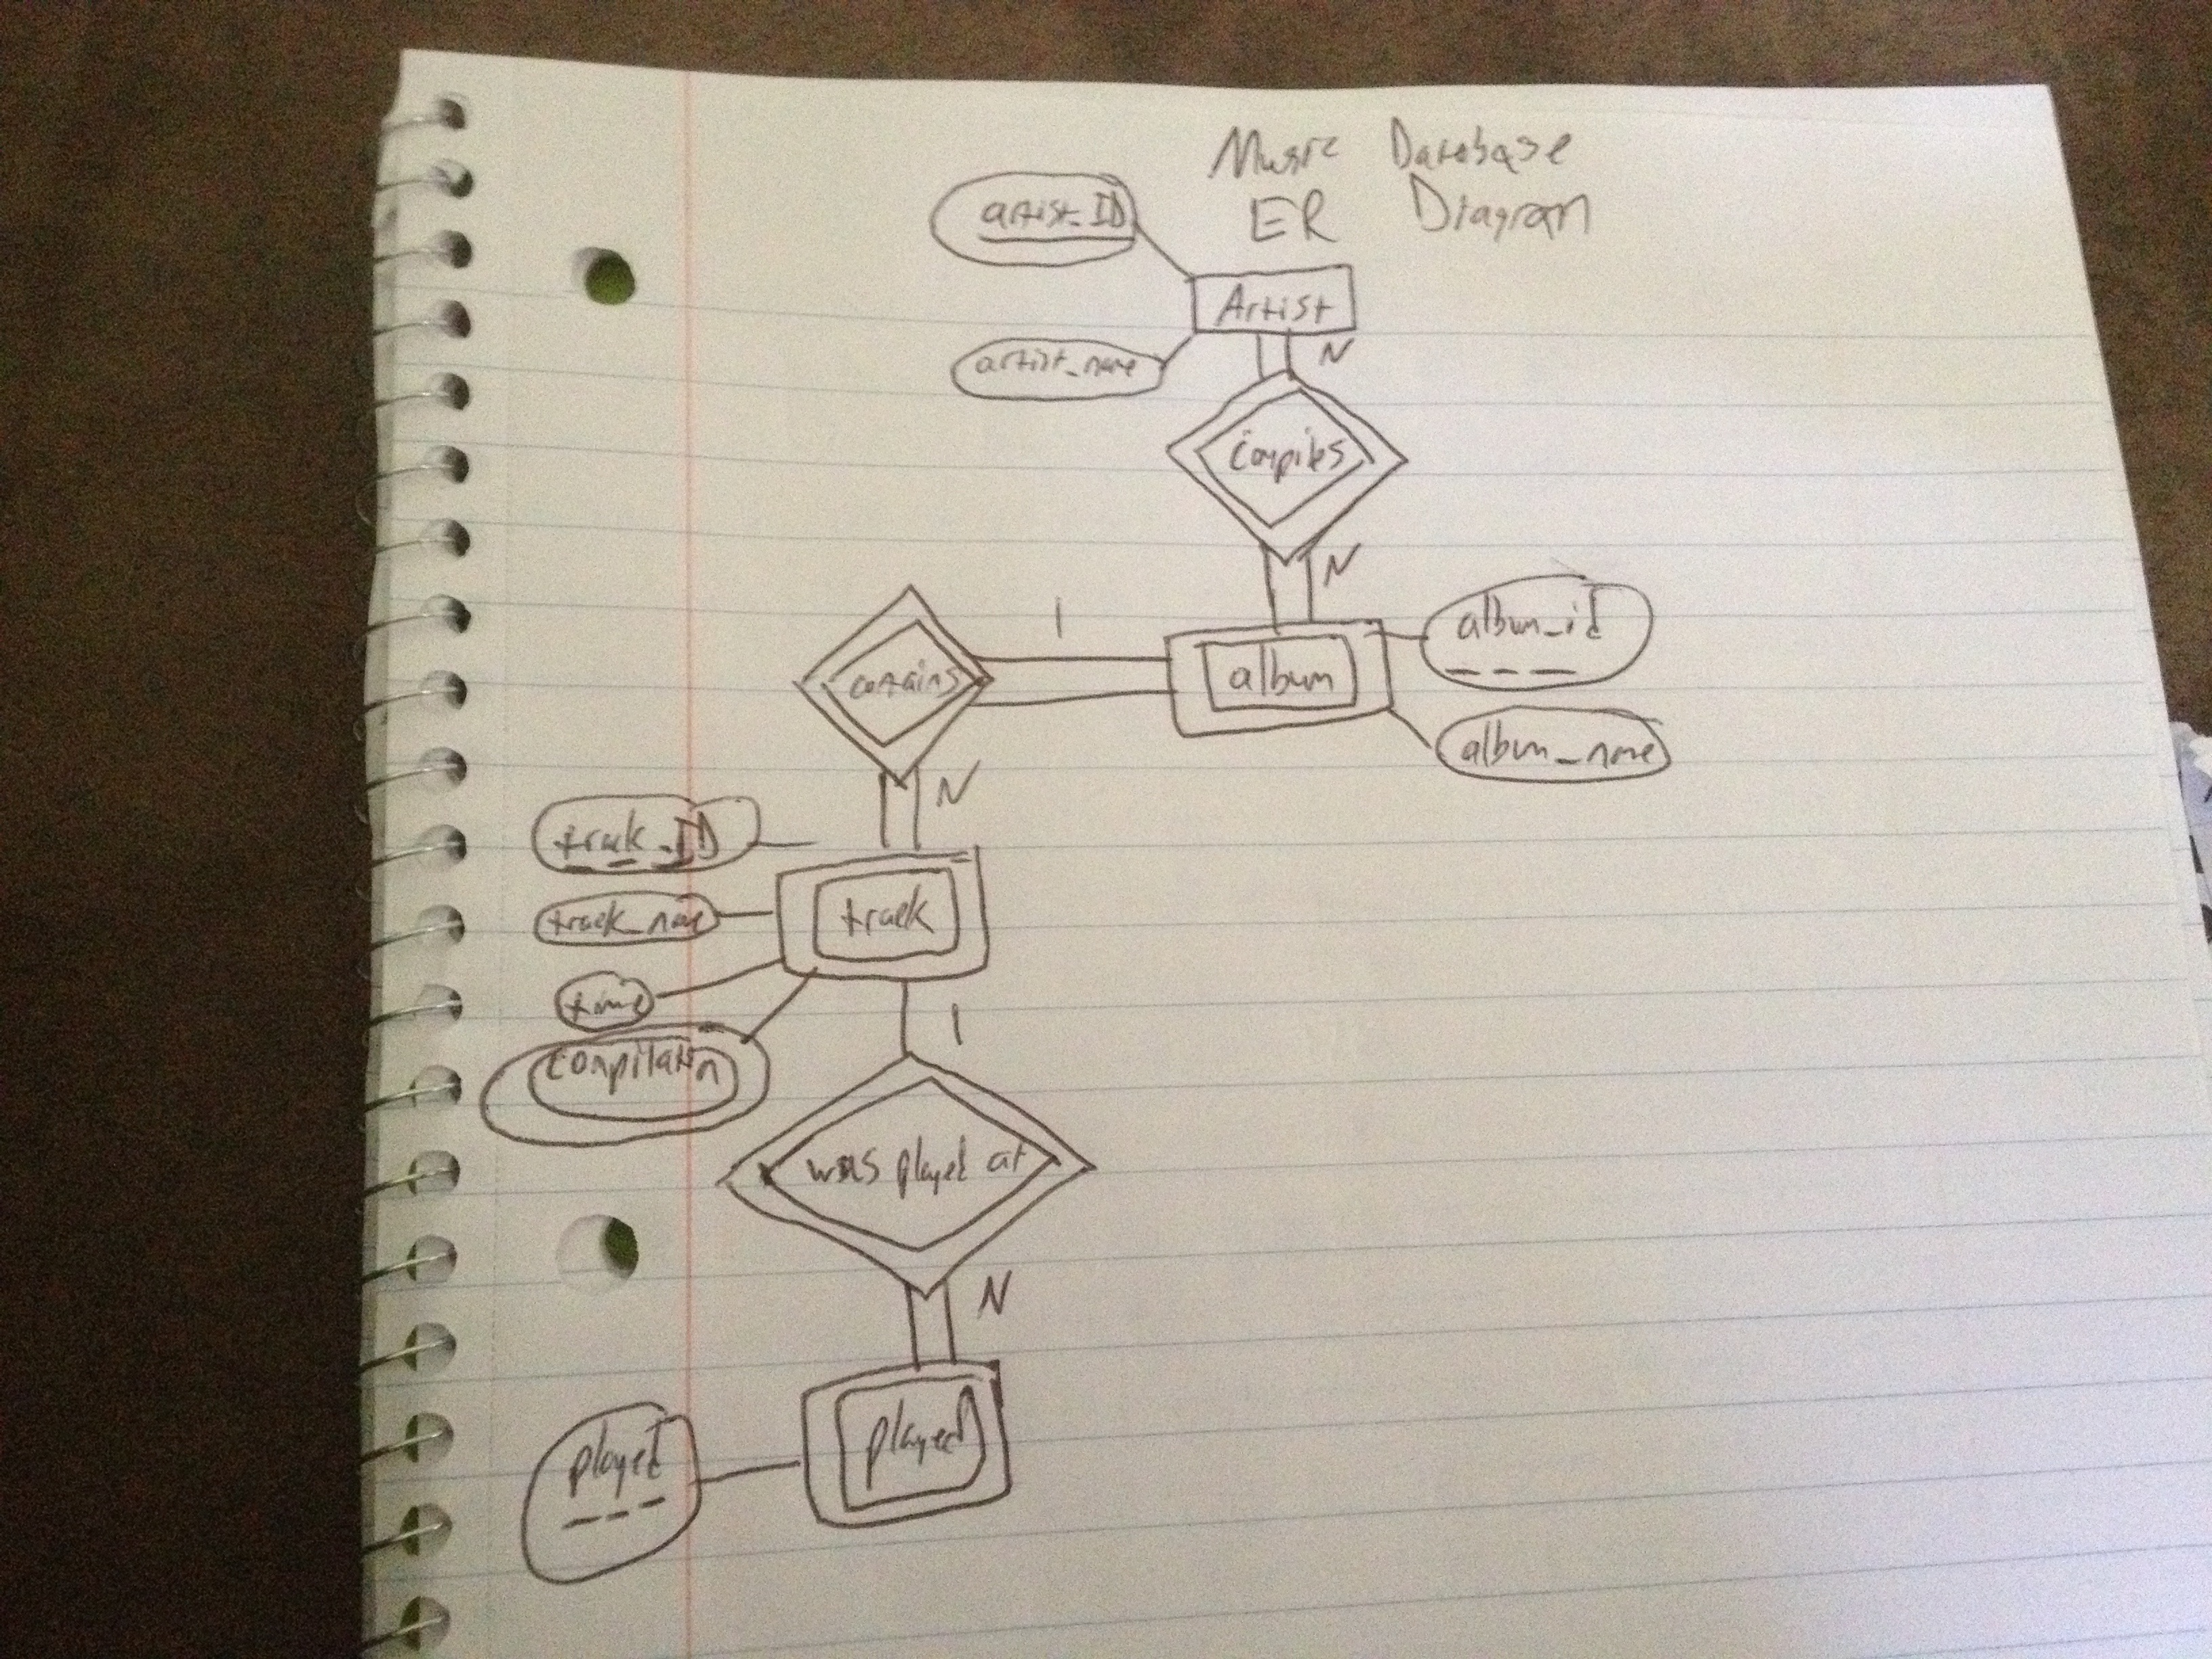 Music Database
ER Diagram
artist_ID
Artist
artist_name
N
compiles
N
1
album_id
contains
album
album_name
N
track_ID
track_name
track
time
1
compilation
was played at
N
played
played